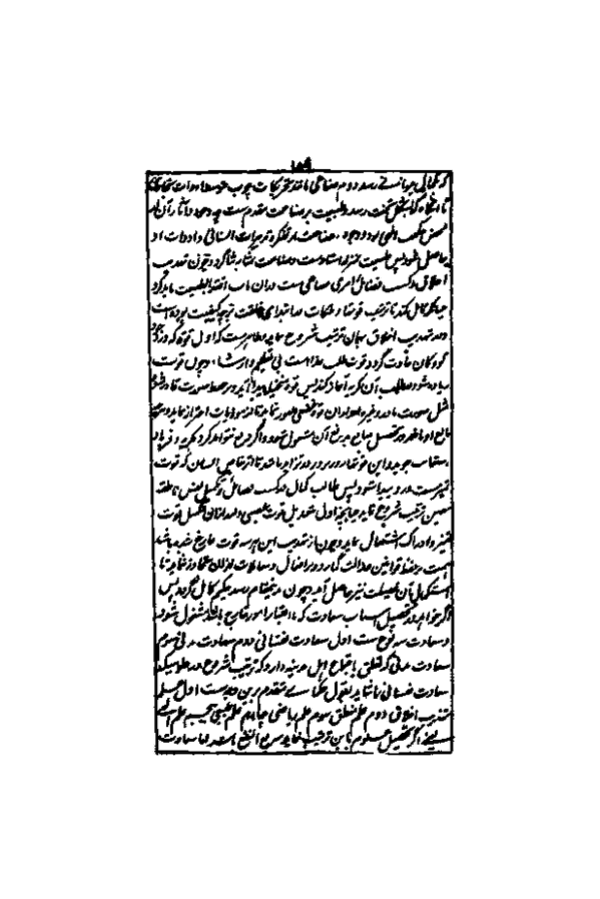 که کمالی بدو رسد و دوم صناعی مانند تحریکات چوب بتوسط ادوات
تا آنگاه که بشکل تخت رسد و طبیعت بر صناعت مقدم ست چه وجود و آثار آن از
محض حکمت الهی بود و وجود صناعت از تفکر و ترتیبات انسانی و ادوات او
حاصل شود پس طبیعت بمنزله استاد ست و صناعت بمثابه شاگرد و چون تهذیب
اخلاق و کسب فضائل امری صناعی ست دران باب اقتدا بطبیعت باید کرد
کمال کند تا ترتیب قوتها و ملکات در ابتدای خلقت بر چه کیفیت بوده است
و در تهذیب اخلاق بهمان ترتیب شروع نماید و ظاهر ست که اول قوتی که در
کودکان حادث گردد قوت طلب غذا است بی تعلیم و ارشاد و چون قوت
زیاده شود و مطلب بآن گریه آغاز کند پس قوه تخیل پیدا آید و بر حفظ صورت قادر شود
مثل صورت مادر و غیره بعد ازان قوه غضبی ظهور نماید تا از موذیات احتراز نماید و
مانع او باشد در تحصیل منافع بدفع آن مشغول شود و اگر دفع نتواند کرد بگریه و فریاد
استعانت جوید و این قوتها روز بروز در تزاید باشد تا اثر خاص انسان که قوت
تمییز ست درو پیدا شود پس طالب کمال در کسب فضائل و تکمیل نفس ناطقه
بهمین ترتیب شروع نماید چنانچه اول تعدیل قوت و بعد ازان تکمیل قوت
تمییز و ادراک اشتغال نماید و چون از تهذیب این هر سه قوت فارغ شده باشد
همت بر حفظ قوانین عدالت گمارد و در افعال و معاملات ازان تجاوز ننماید تا
استکمال آن فضیلت نیز حاصل آید و چون بدین مقام رسد بکمال گردد پس
اگر خواهد در تحصیل اسباب سعادت که باعتبار امور خارج باشد مشغول شود
و سعادت سه نوع ست اول سعادت نفسانی دوم سعادت بدنی سوم
سعادت مدنی که تعلق باجتماع اهل مدینه دارد که ترتیب شروع در
سعادت نفسانی نماید بقول حکمای متقدم برین وجه ست اول علم
تهذیب اخلاق دوم علم منطق سوم علم ریاضی چهارم علم طبیعی پنجم علم الهی
یعنی اگر تحصیل علوم باین ترتیب نماید سریع النفع باشد اما سعادت